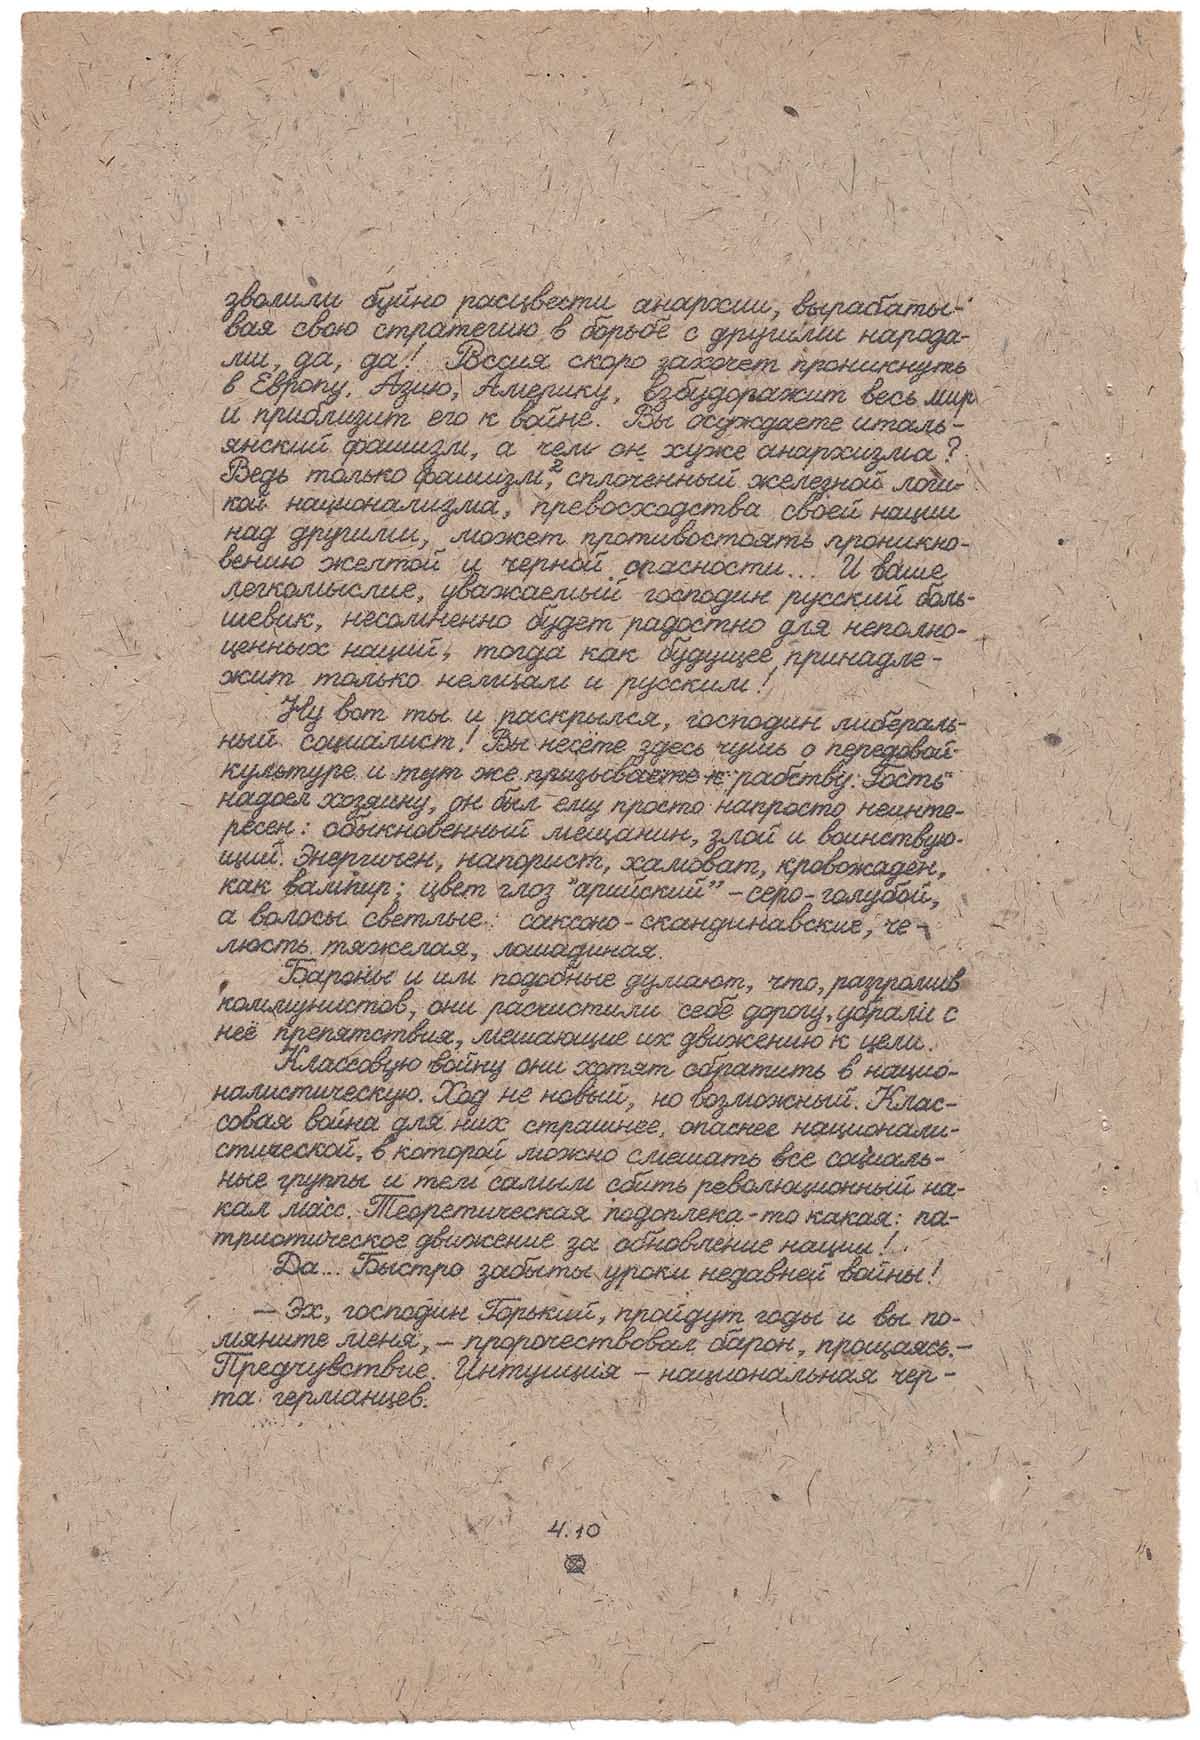 зволили буйно расцвести анархии, вырабаты-
вая свою стратегию в борьбе с другими народа-
ми, да, да! Россия скоро захочет проникнуть
в Европу, Азию, Америку, взбудоражит весь мир
и приблизит его к войне. Вы осуждаете италь-
янский фашизм, а чем он хуже анархизма?
Ведь только фашизм,² сплоченный железной логи-
кой национализма, превосходства своей нации
над другими, может противостоять проникно-
вению желтой и черной опасности... И ваше
легкомыслие, уважаемый господин русский боль-
шевик, несомненно будет радостно для неполно-
ценных наций, тогда как будущее принадле-
жит только немцам и русским!
Ну вот ты и раскрылся, господин либераль-
ный социалист! Вы несёте здесь чушь о передовой
культуре и тут же призываете к рабству. Гость
надоел хозяину, он был ему просто напросто неинте-
ресен: обыкновенный мещанин, злой и воинствую-
щий. Энергичен, напорист, хамоват, кровожаден,
как вампир; цвет глоз "арийский" – серо-голубой,
а волосы светлые: саксоно-скандинавские, че-
люсть тяжелая, лошадиная.
Бароны и им подобные думают, что, разгромив
коммунистов, они расчистили себе дорогу, убрали с
неё препятствия, мешающие их движению к цели.
Классовую войну они хотят обратить в нацио-
налистическую. Ход не новый, но возможный. Клас-
совая война для них страшнее, опаснее национали-
стической, в которой можно смешать все социаль-
ные группы и тем самым сбить революционный на-
кал масс. Теоретическая подоплека-то какая: па-
триотическое движение за обновление нации!
Да... Быстро забыты уроки недавней войны!
– Эх, господин Горький, пройдут годы и вы по-
мяните меня, – пророчествовал барон, прощаясь. –
Предчувствие. Интуиция – национальная чер-
та германцев.
4.10